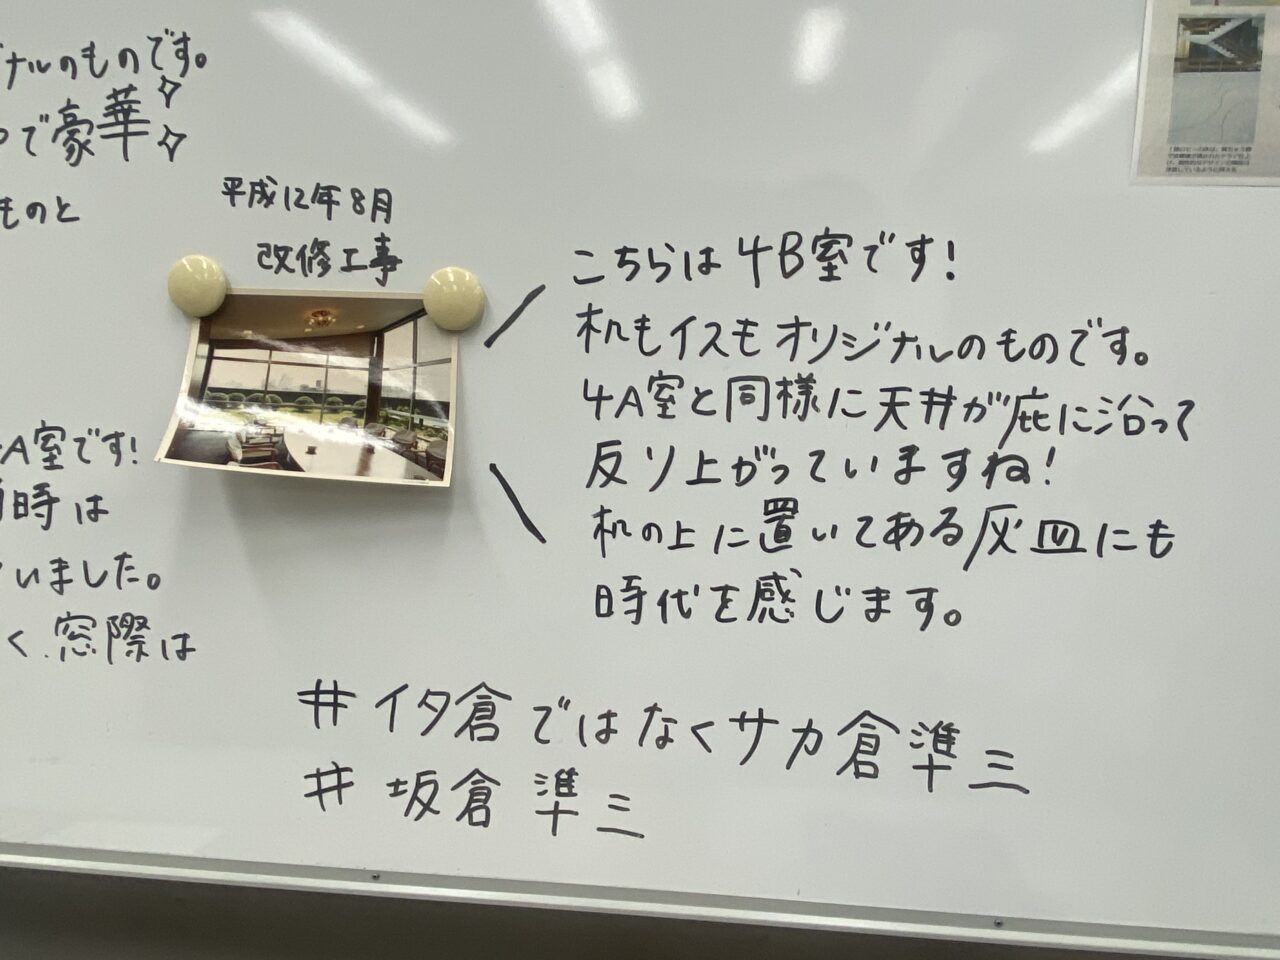 ナルのものです。
で豪華
ものと
A室です!
時は
いました。
く窓際は
平成12年8月
改修工事
こちらは4B室です!
机もイスもオリジナルのものです。
4A室と同様に天井が庇に沿って
反り上がっていますね!
机の上に置いてある灰皿にも
時代を感じます。
#イタ倉ではなくサカ倉準三
#坂倉準三